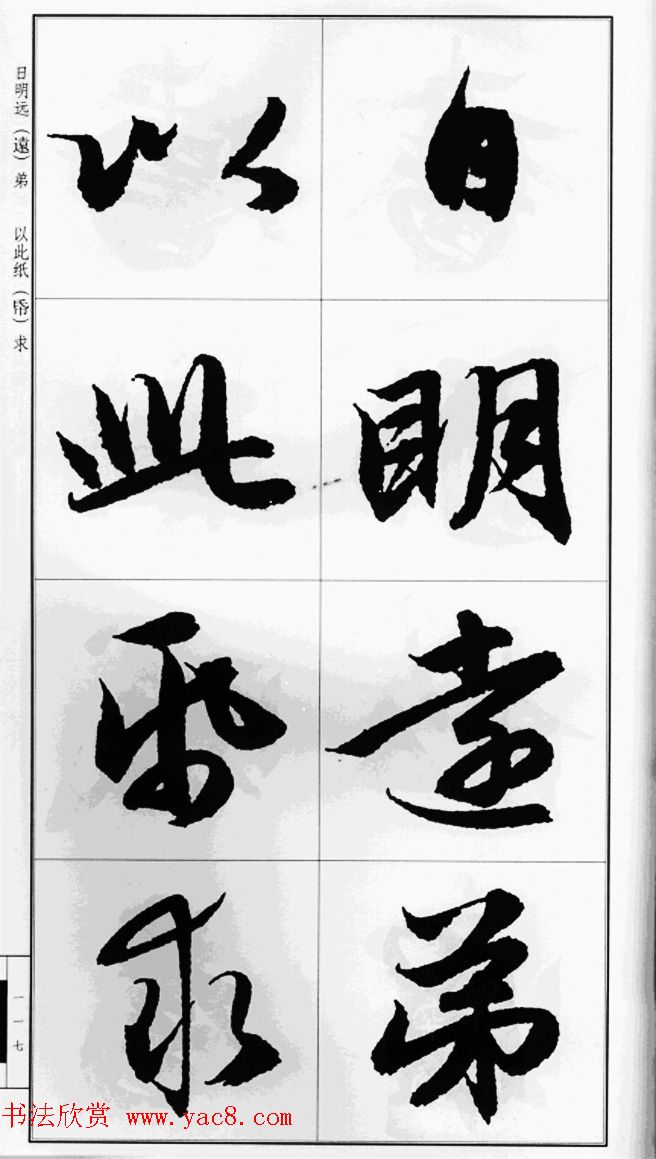 日明遠弟
以此帋求
日明远（遠）弟 以此纸（帋）求
一一七
书法欣赏 www.yac8.com